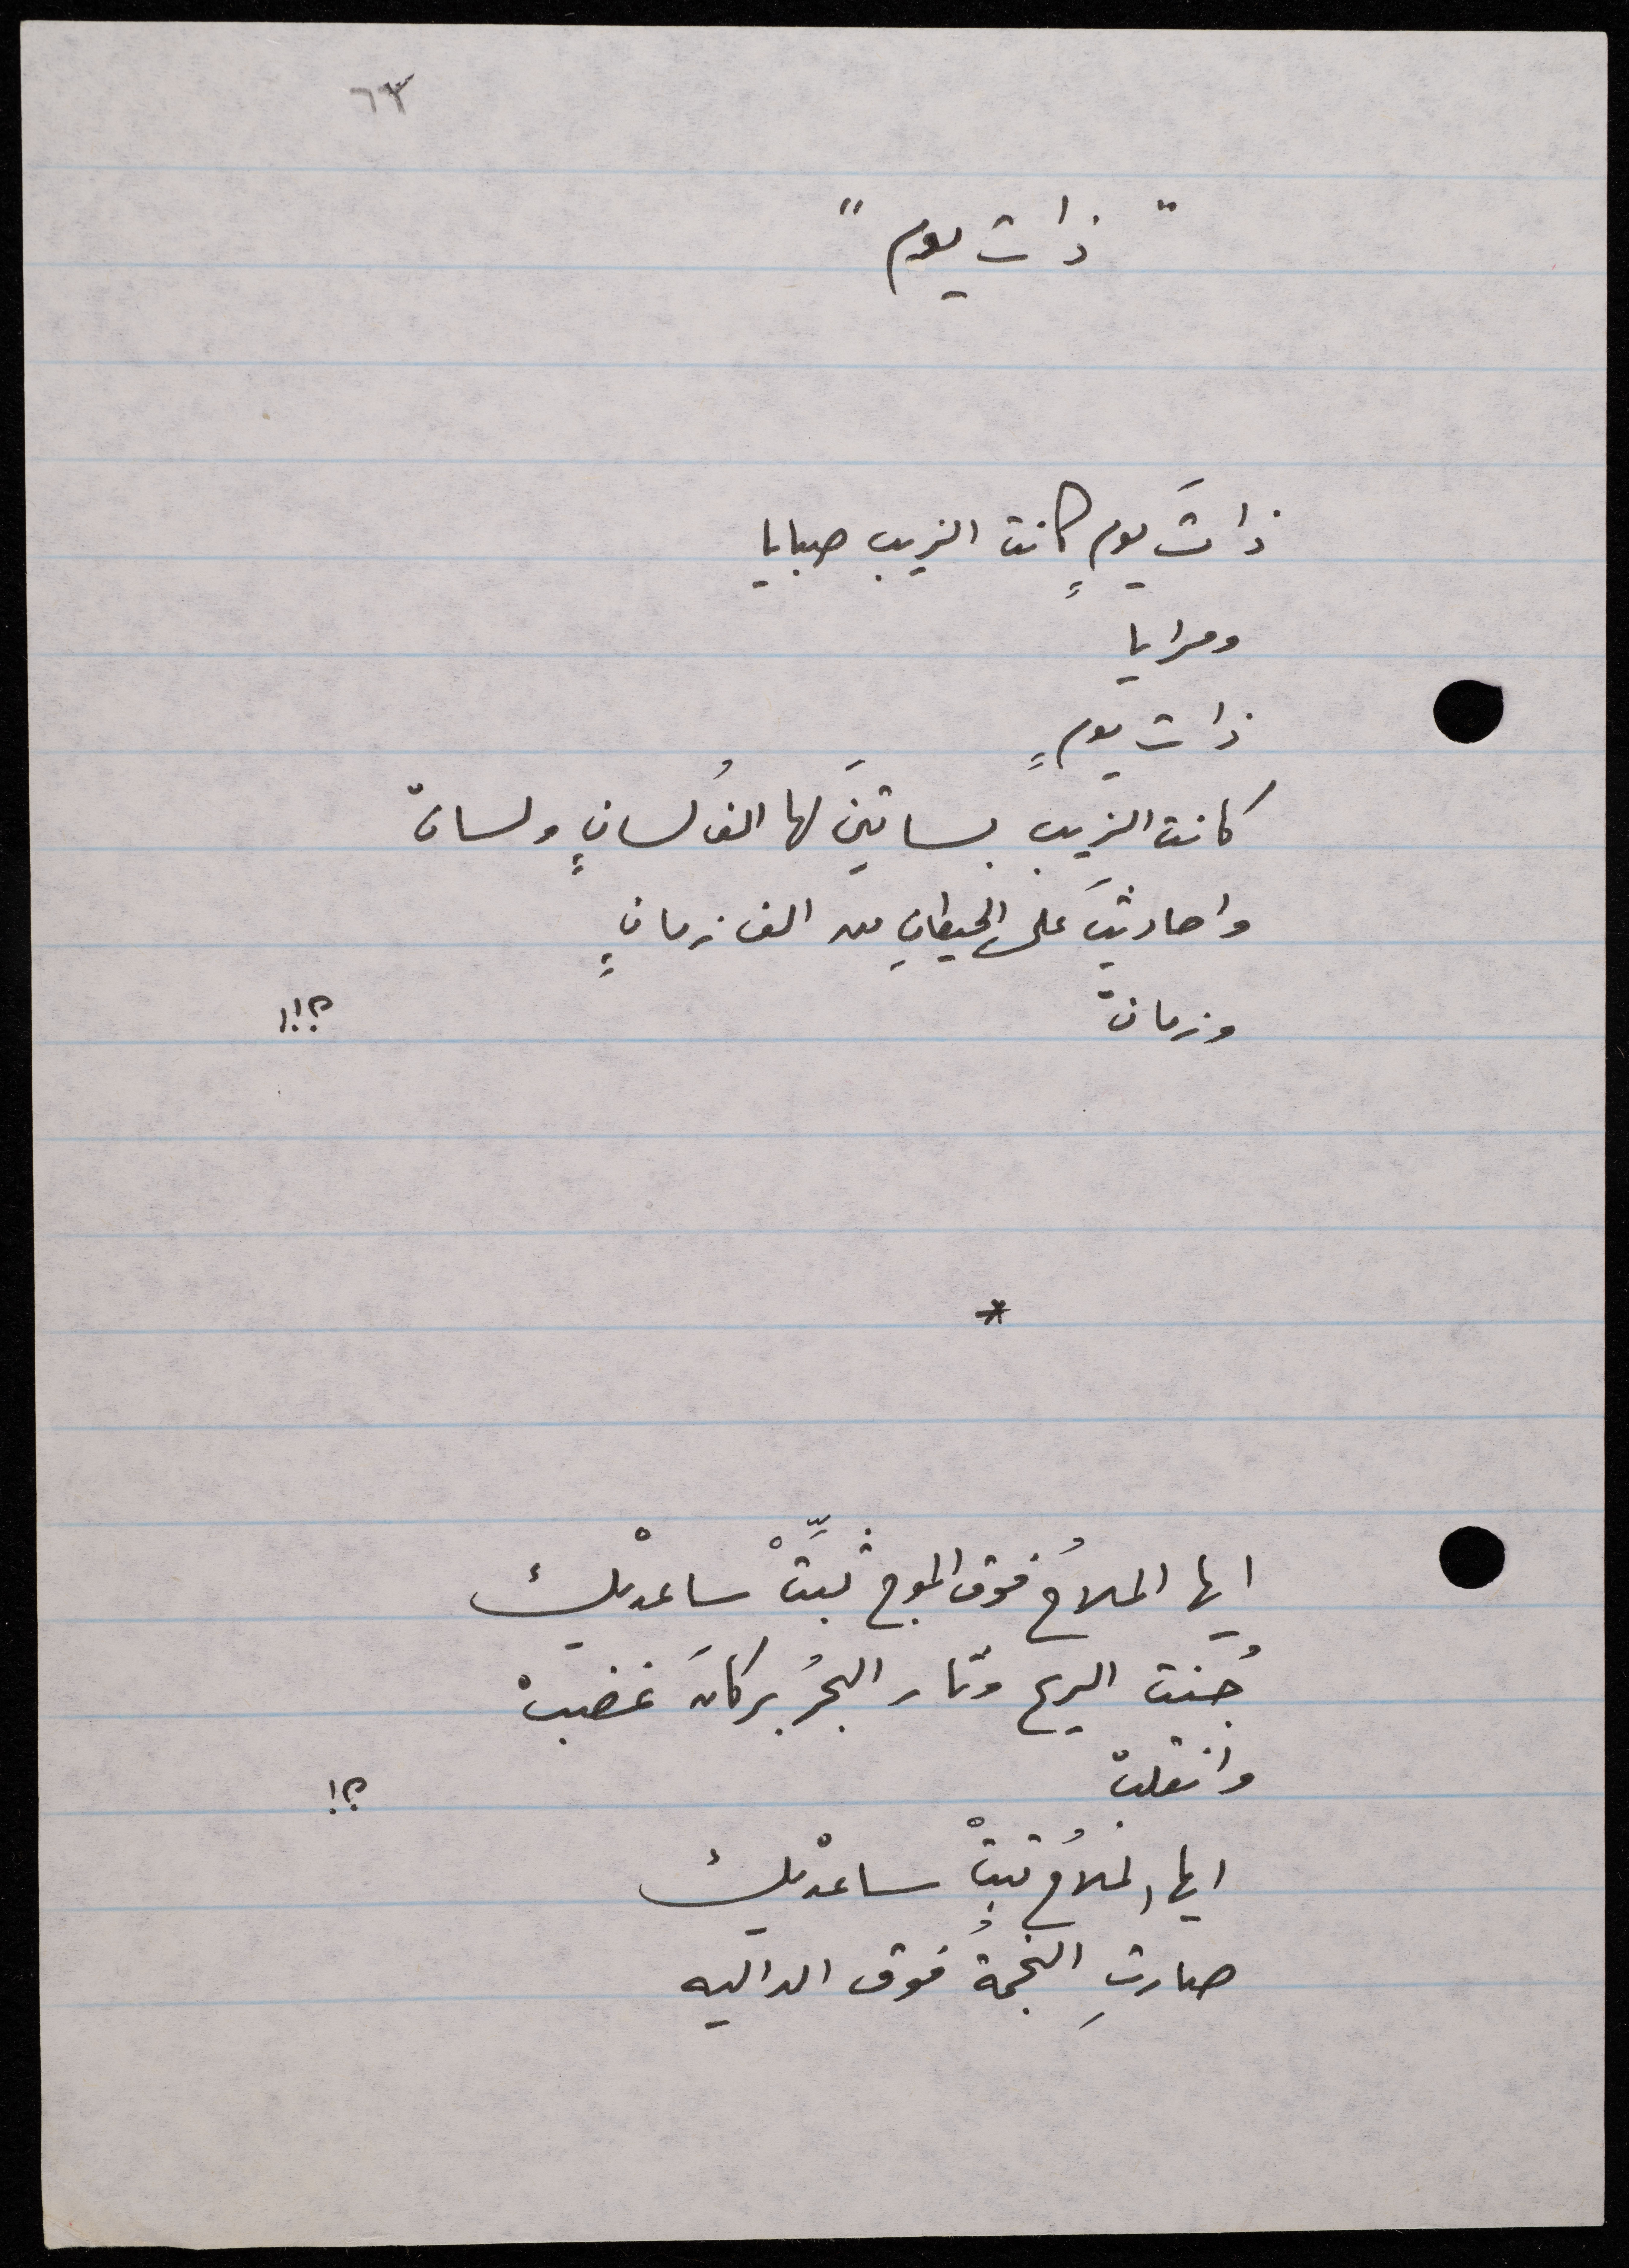 ٦٣
" ذات يوم "
ذاتَ يومٍ كانت الزيب صبايا
ومرايا
ذات يومٍ
كانت الزيب بساتينَ لها الفُ لسانٍ ولسانْ
واحاديثَ على الحيطانِ من الف زمانٍ
وزمانْ ؟!!
*
ايها الملاحُ فوق الموج ثبِّتْ ساعدْيك
جُنت الريح وثار البحرُ بركانَ غضبْ
وانقلبْ ؟!
ايها الملاحُ ثبتْ ساعدْيك
صارتِ النجمةُ فوق الداليه